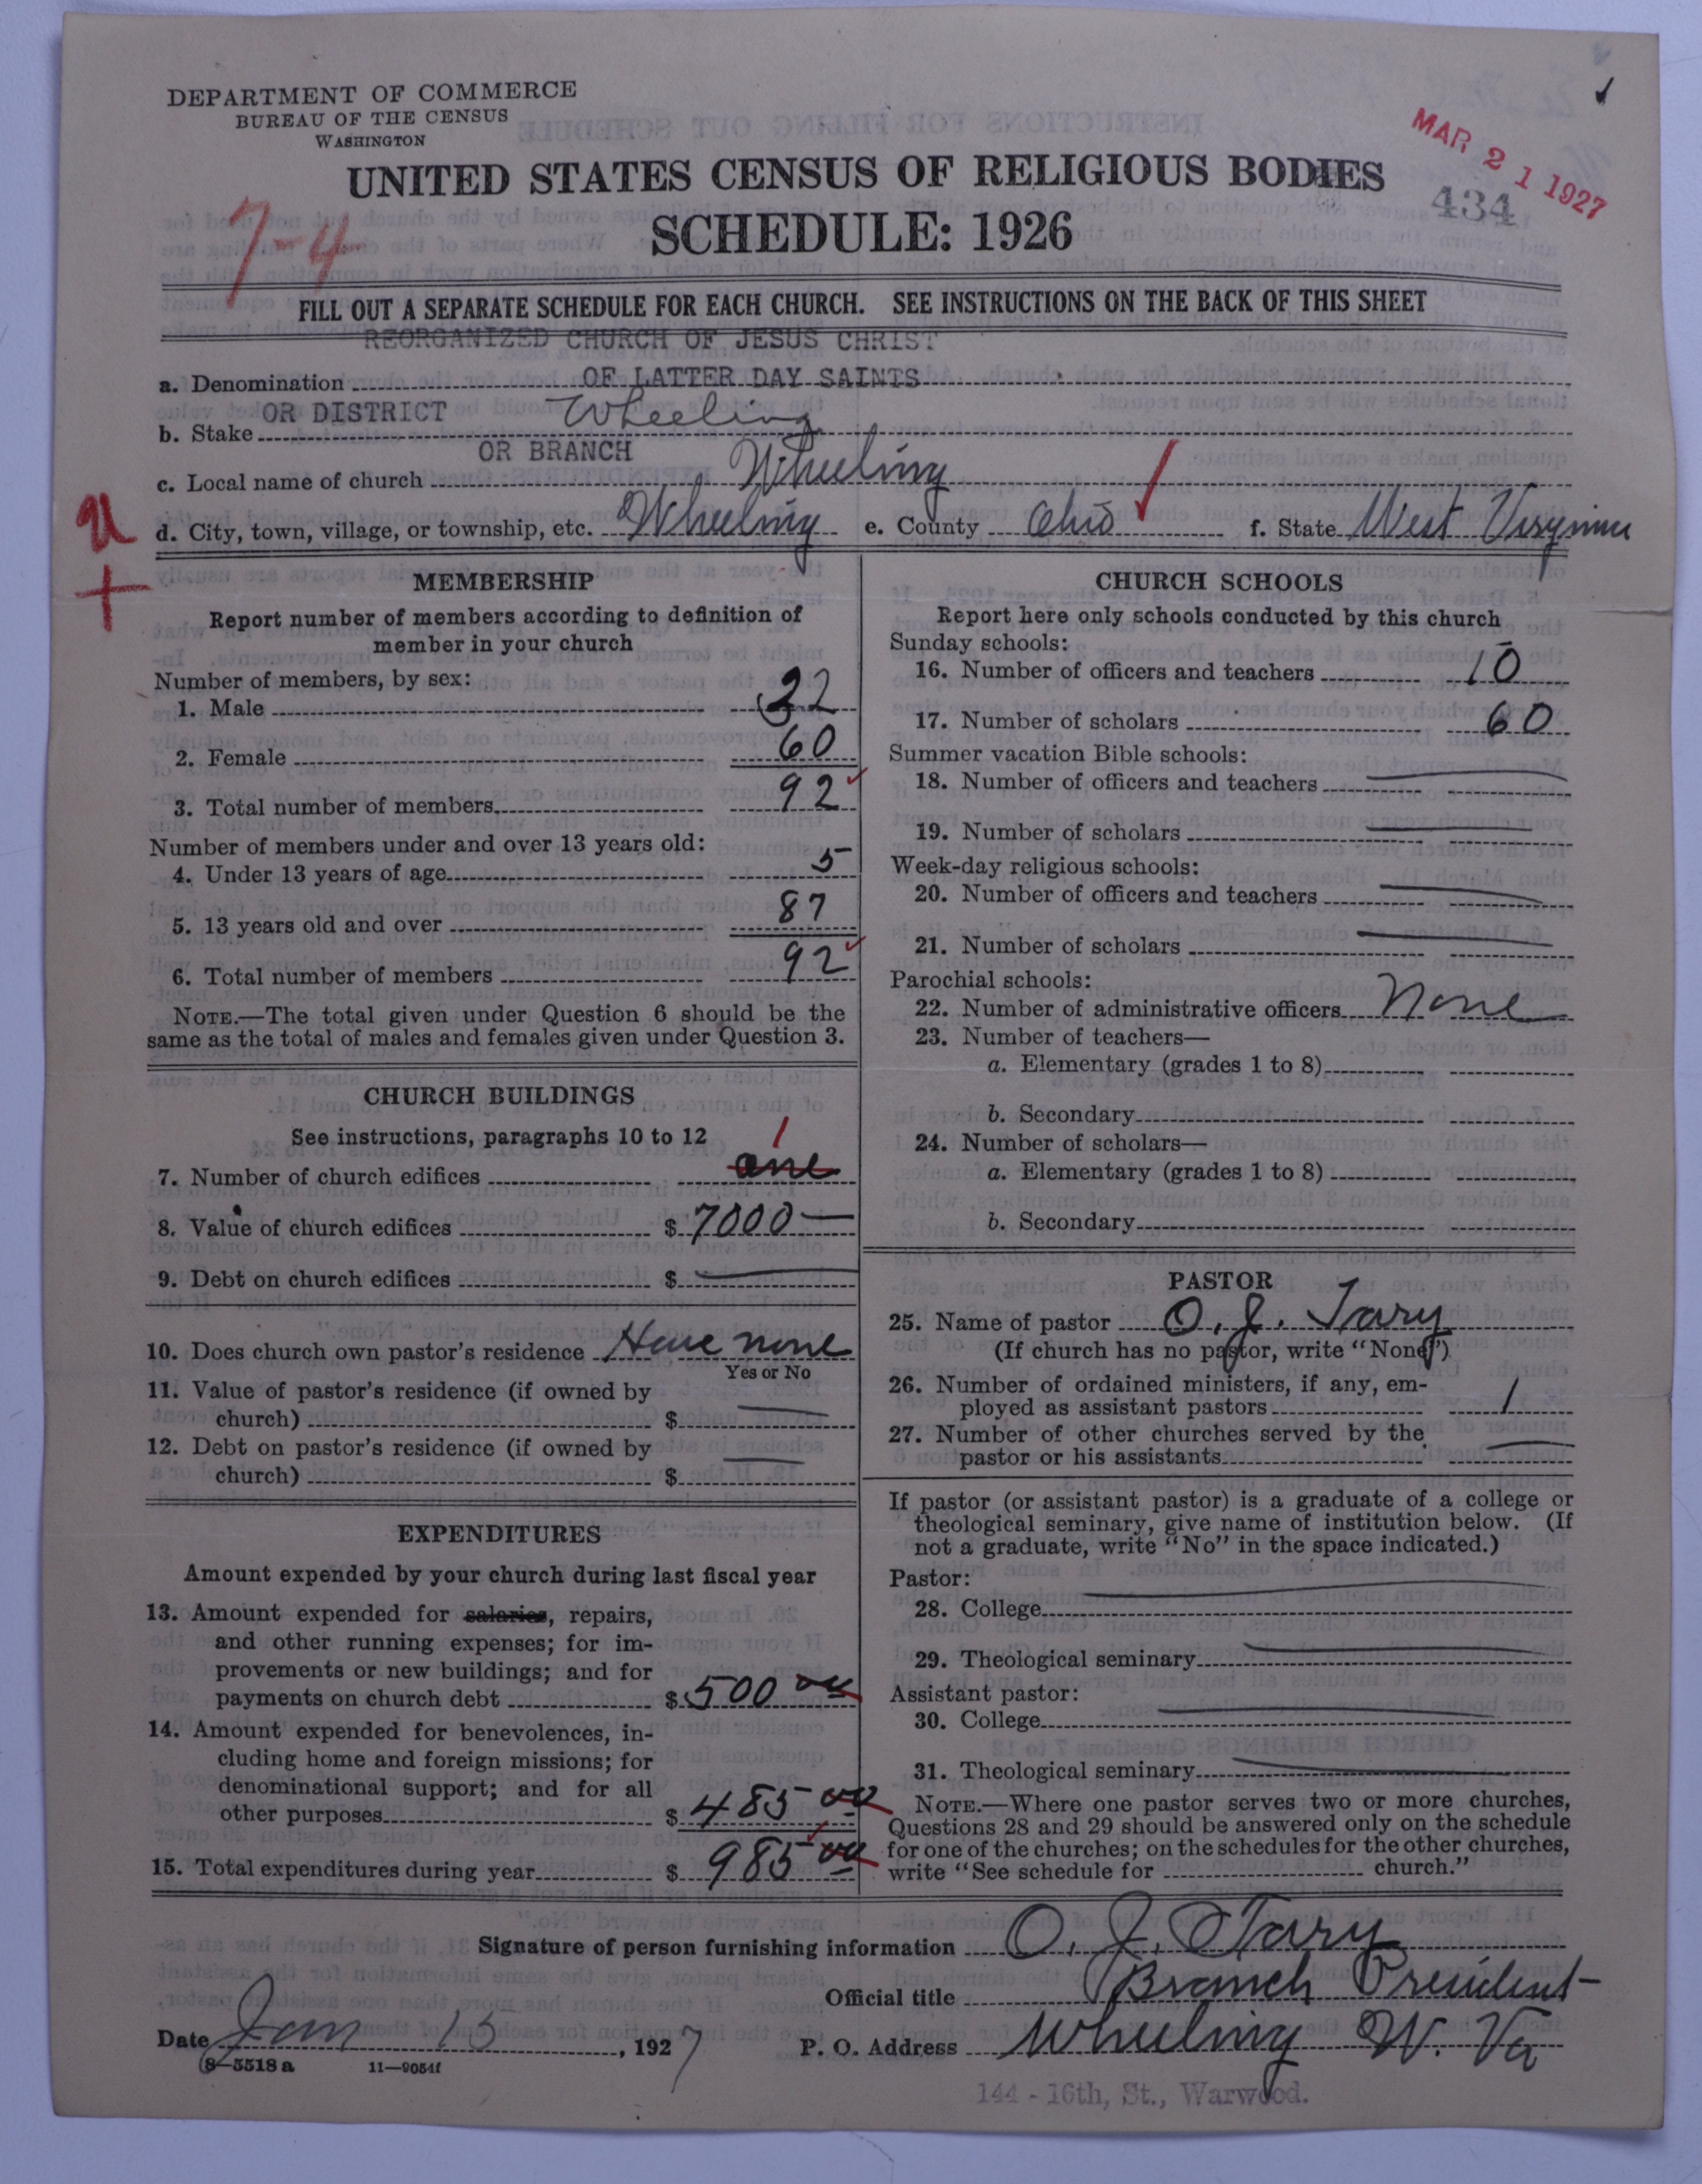 DEPARTMENT OF COMMERCE
BUREAU OF THE CENSUS
WASHINGTON
MAR 21 1927
434
UNITED STATES CENSUS OF RELIGIOUS BODIES
SCHEDULE: 1926
7-4
FILL OUT A SEPARATE SCHEDULE FOR EACH CHURCH. SEE INSTRUCTIONS ON THE BACK OF THIS SHEET
REORGANIZED CHURCH OF JESUS CHRIST
a. Denomination OF LATTER DAY SAINTS
OR DISTRICT
b. Stake Wheeling
OR BRANCH
c. Local name of church Wheeling
d. City, town, village, or township, etc. Wheeling e. County Ohio f. State West Virginia
MEMBERSHIP
Report number of members according to definition of
member in your church
Number of members, by sex:
1. Male 32
2. Female 60
3. Total number of members 92
Number of members under and over 13 years old:
4. Under 13 years of age 5
5. 13 years old and over 87
6. Total number of members 92
NOTE.—The total given under Question 6 should be the
same as the total of males and females given under Question 3.
CHURCH BUILDINGS
See instructions, paragraphs 10 to 12
1
7. Number of church edifices one
8. Value of church edifices $ 7000 —
9. Debt on church edifices $ —
10. Does church own pastor's residence Have none
Yes or No
11. Value of pastor's residence (if owned by
church) $ —
12. Debt on pastor's residence (if owned by
church) $ —
EXPENDITURES
Amount expended by your church during last fiscal year
13. Amount expended for salaries, repairs,
and other running expenses; for im-
provements or new buildings; and for
payments on church debt $ 500 00
14. Amount expended for benevolences, in-
cluding home and foreign missions; for
denominational support; and for all
other purposes $ 485 00
15. Total expenditures during year $ 985 00
CHURCH SCHOOLS
Report here only schools conducted by this church
Sunday schools:
16. Number of officers and teachers 10
17. Number of scholars 60
Summer vacation Bible schools:
18. Number of officers and teachers —
19. Number of scholars —
Week-day religious schools:
20. Number of officers and teachers —
21. Number of scholars —
Parochial schools:
22. Number of administrative officers None
23. Number of teachers—
a. Elementary (grades 1 to 8)
b. Secondary
24. Number of scholars—
a. Elementary (grades 1 to 8)
b. Secondary
PASTOR
25. Name of pastor O. J. Tary
(If church has no pastor, write "None")
26. Number of ordained ministers, if any, em-
ployed as assistant pastors 1
27. Number of other churches served by the
pastor or his assistants —
If pastor (or assistant pastor) is a graduate of a college or
theological seminary, give name of institution below. (If
not a graduate, write "No" in the space indicated.)
Pastor:
28. College —
29. Theological seminary —
Assistant pastor:
30. College —
31. Theological seminary —
NOTE.—Where one pastor serves two or more churches,
Questions 28 and 29 should be answered only on the schedule
for one of the churches; on the schedules for the other churches,
write "See schedule for church."
Signature of person furnishing information O. J. Tary
Official title Branch President
Date Jan 13, 1927 P. O. Address Wheeling W. Va
8-5518 a 11-9054f
144 - 16th, St., Warwood.